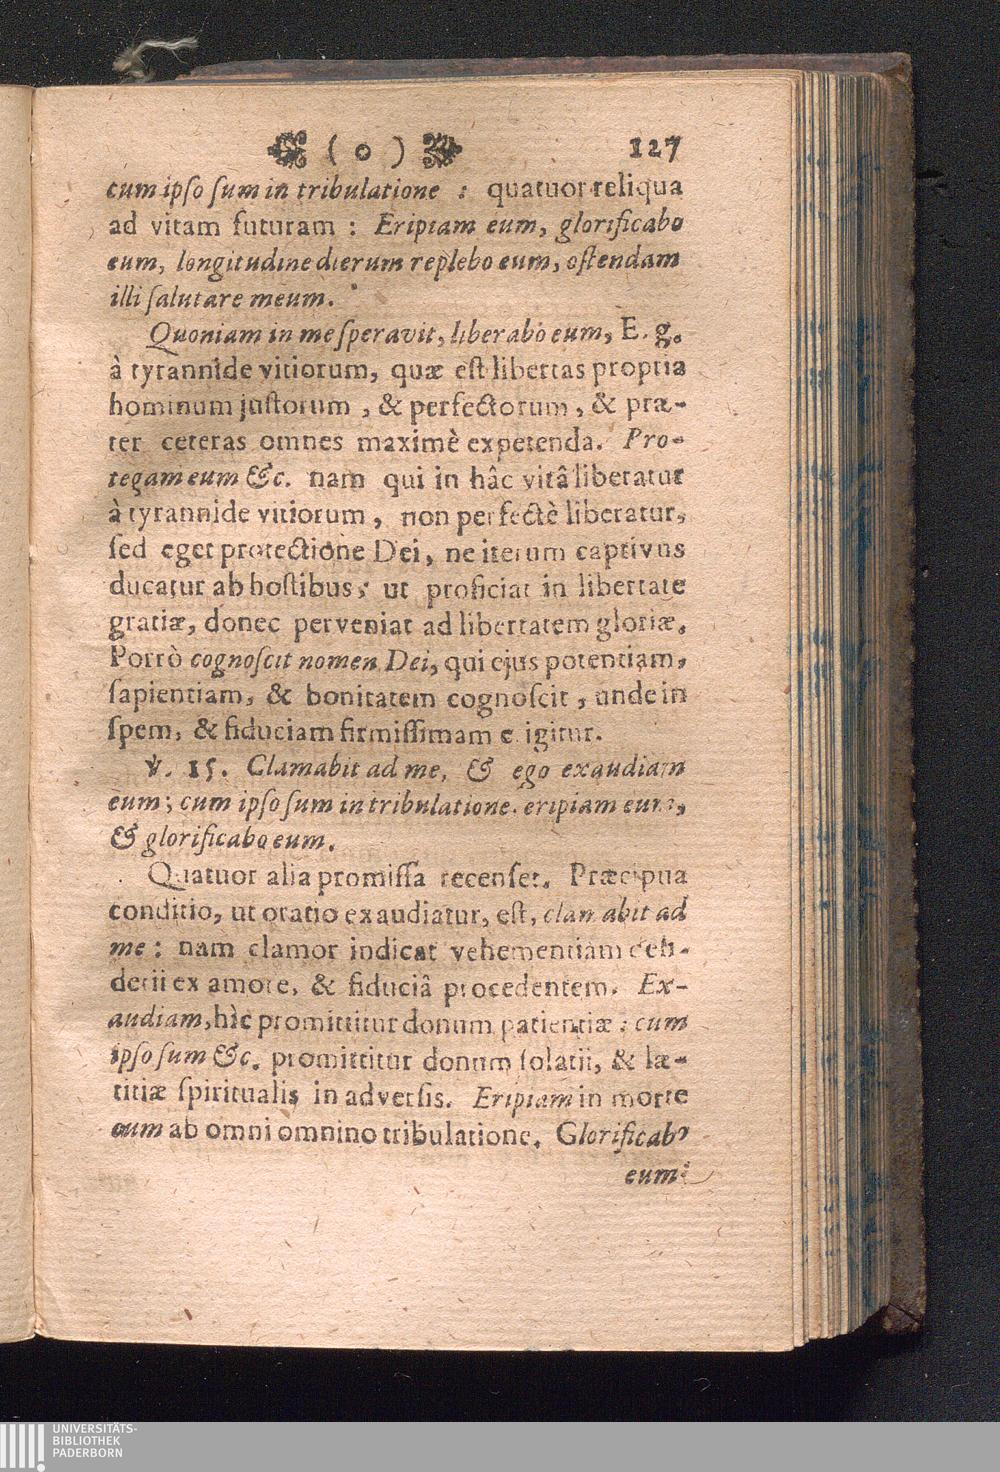 ( o ) 127
cum ipso sum in tribulatione : quatuor reliqua
ad vitam futuram : Eripiam eum, glorificabo
eum, longitudine dierum replebo eum, ostendam
illi salutare meum.
Quoniam in me speravit, liberabo eum, E. g.
à tyrannide vitiorum, quæ est libertas propria
hominum justorum , & perfectorum , & præ-
ter ceteras omnes maximè expetenda. Pro-
tegam eum &c. nam qui in hâc vitâ liberatur
à tyrannide vitiorum , non perfectè liberatur,
sed eget protectione Dei, ne iterum captivus
ducatur ab hostibus; ut proficiat in libertate
gratiæ, donec perveniat ad libertatem gloriæ.
Porrò cognoscit nomen Dei, qui ejus potentiam,
sapientiam, & bonitatem cognoscit , unde in
spem, & fiduciam firmissimam e igitur.
℣. 15. Clamabit ad me, & ego exaudiam
eum; cum ipso sum in tribulatione. eripiam eum,
& glorificabo eum.
Quatuor alia promissa recenset. Præcipua
conditio, ut oratio exaudiatur, est, clamabit ad
me : nam clamor indicat vehementiam desi-
derii ex amore, & fiduciâ procedentem. Ex-
audiam, hìc promittitur donum patientiæ : cum
ipso sum &c. promittitur donum solatii, & læ-
titiæ spiritualis in adversis. Eripiam in morte
eum ab omni omnino tribulatione. Glorificabo
eum:
UNIVERSITÄTS-
BIBLIOTHEK
PADERBORN